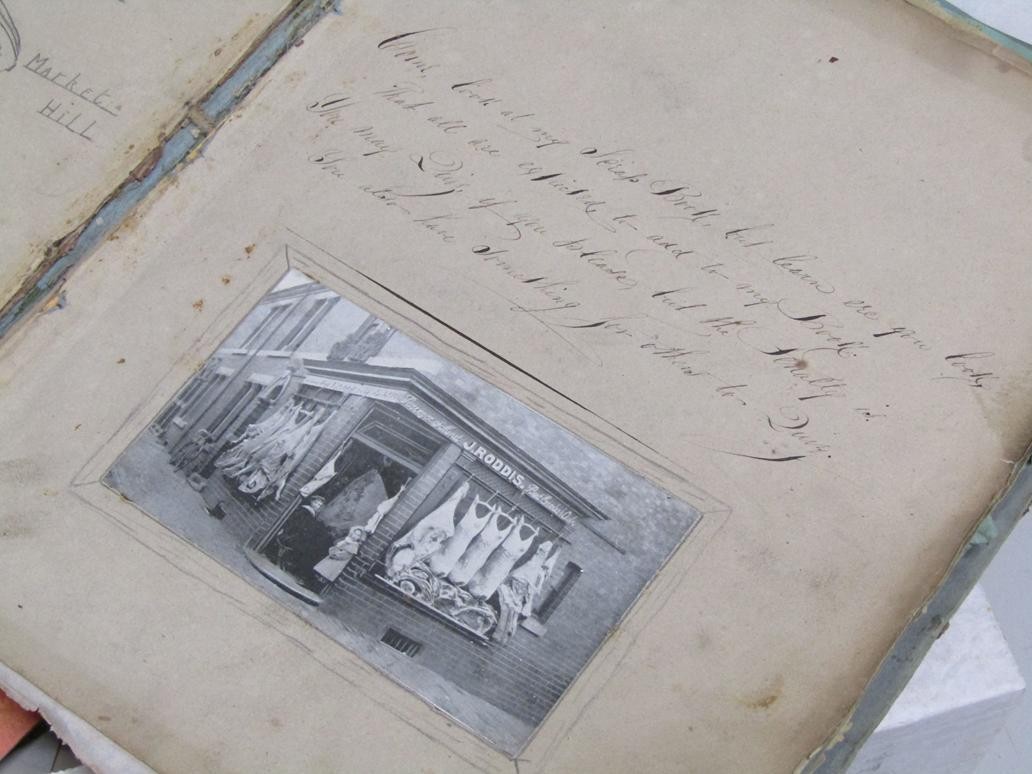 Market
Hill
Come, look at my Skrap Book, but learn ere you look,
That all are expected to add to my Book.
You may Quiz if you please, but the Penalty is
You also have Something for others to Quiz
J. RODDIS.